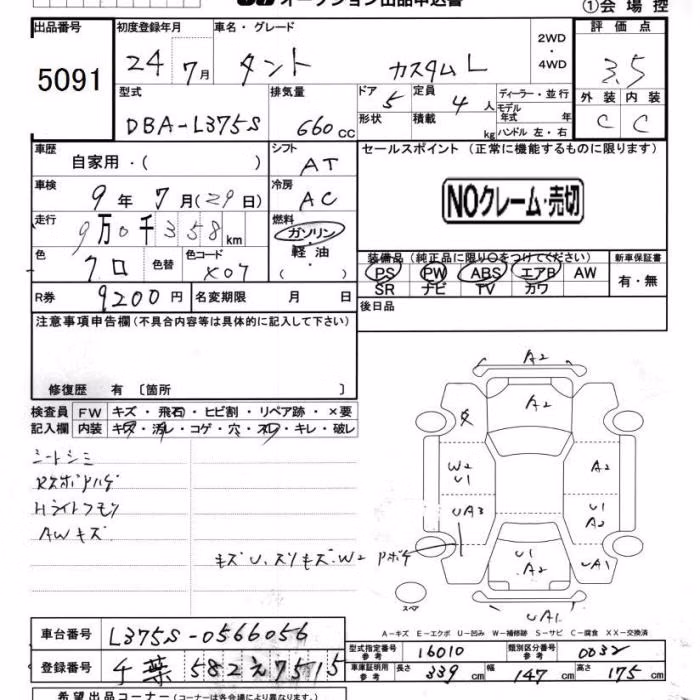 オークション出品申込書
①会場控
出品番号
5091
初度登録年月
24 7月
車名・グレード
タント カスタムL
2WD
・
4WD
評価点
3.5
外装 内装
C C
型式
DBA-L375S
排気量
660cc
ドア
5
形状
定員
4人
積載
kg
ディーラー・並行
モデル年式 年
ハンドル 左・右
車歴
自家用・( )
シフト
AT
車検
9年7月(29日)
冷房
AC
走行
9万0千358km
燃料
ガソリン
軽油
( )
色
クロ
色替
色コード
X07
R券
9200円
名変期限 月 日
セールスポイント(正常に機能するものに限ります)
NOクレーム・売切
装備品(純正品に限り○をつけてください)
PS PW ABS エアB AW
SR ナビ TV カワ
新車保証書
有・無
後日品
注意事項申告欄(不具合内容等は具体的に記入して下さい)
修復歴 有 〔箇所 〕
検査員記入欄
FW キズ・飛石・ヒビ割・リペア跡・×要
内装 キズ・汚レ・コゲ・穴・スレ・キレ・破レ
シートシミ
Hライトクモリ
AWキズ
キズU.スリキズ.W2
A2
A2
W2
U1
A2
UA3
U1
A2
U1
A2
UA1
UA1
スペア
A-キズ E-エクボ U-凹み W-補修跡 S-サビ C-腐食 XX-交換済
車台番号
L375S-0566056
登録番号
千葉 582 え 7515
型式指定番号
参考
16010
類別区分番号
参考
0032
車庫証明用
参考
長さ 339cm 幅 147cm 高さ 175cm
希望出品コーナー(コーナーは各会場により異なります。)